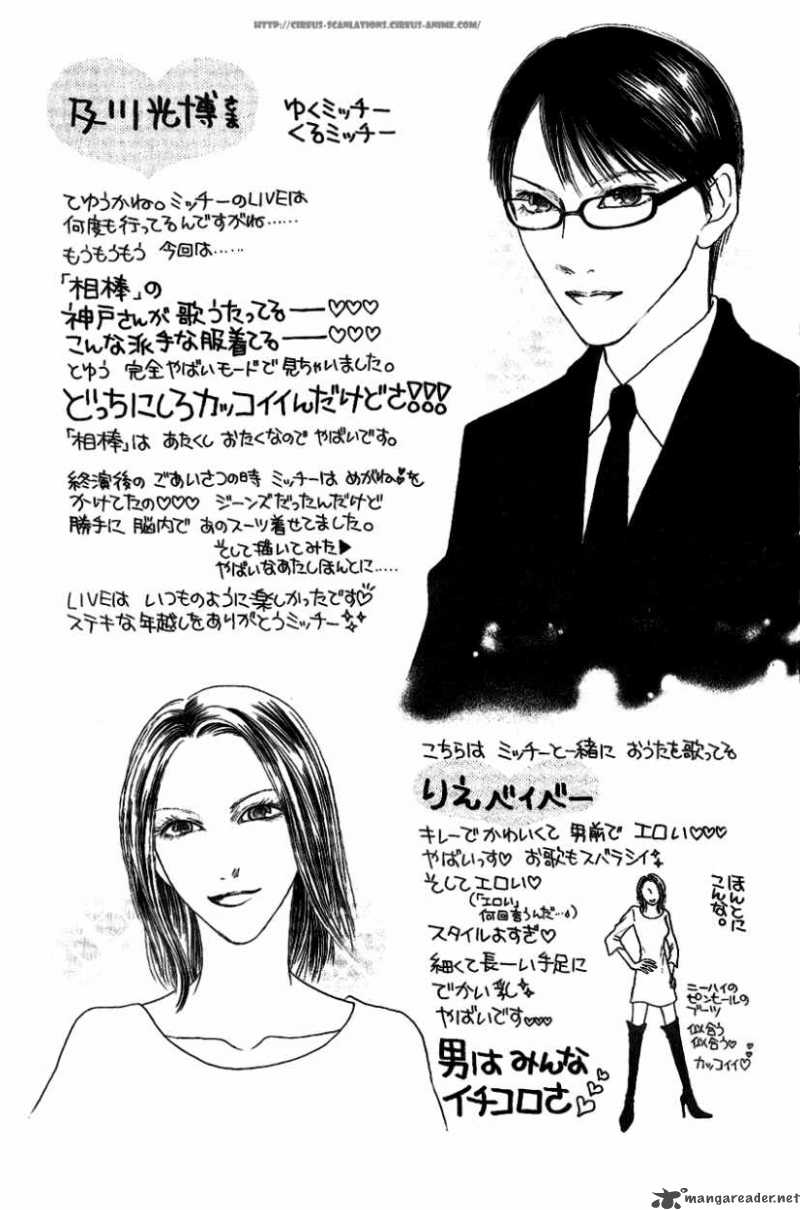 HTTP://CIRRUS-SCANLATIONS.CIRRUS-ANIME.COM/
及川光博さま
ゆくミッチー
くるミッチー
てゆうかね。ミッチーのLIVEは
何度も行ってるんですがね……
もうもうもう 今回は……
「相棒」の
神戸さんが歌うたってるー♡♡♡
こんな派手な服着てるー♡♡♡
とゆう 完全やばいモードで見ちゃいました。
どっちにしろカッコイイんだけどさ!!!
「相棒」は あたくし おたくなので やばいです。
終演後の ごあいさつの時 ミッチーは めがねを
かけてたの♡♡♡ ジーンズだったんだけど
勝手に 脳内で あのスーツ着せてました。
そして描いてみた▶
やばいなあたしほんとに……
LIVEは いつものように楽しかったです♡
ステキな年越しをありがとうミッチー
こちらは ミッチーと一緒に おうたを歌ってる
りえベイベー
キレーでかわいくて 男前で エロい♡♡♡
やばいっす♡ お歌もスバラシイ
そしてエロい♡
(「エロい」
何回言うんだ…)
スタイルよすぎ♡
細くて長ーい手足に
でかい乳
やばいです♡♡♡
男はみんな
イチコロさ♡♡
ほんとに
こんな。
ニーハイの
ピンヒールの
ブーツ
似合う
似合う♡
カッコイイ♡
mangareader.net